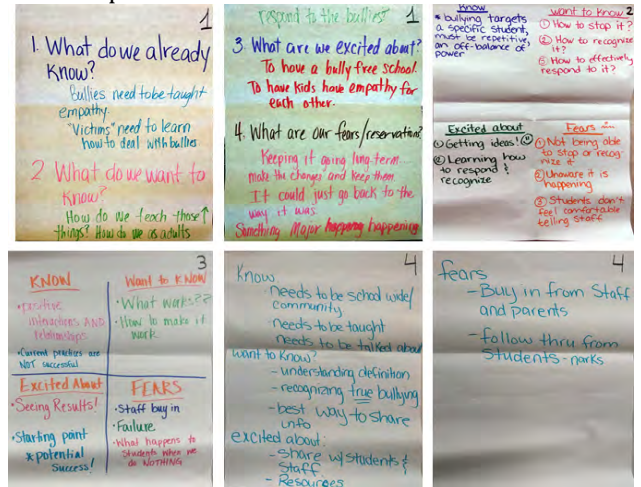 1
1. What do we already
Know?
Bullies need to be taught
empathy.
"Victims" need to learn
how to deal with bullies
2 What do we want to
Know?
How do we teach those
things? How do we as adults
1
respond to the bullies?
3. What are we excited about?
To have a bully free school.
To have kids have empathy for
each other.
4. What are our fears/reservations?
Keeping it going long-term
make the changes and keep them
It could just go back to the
way it was
Something Major happening
2
Know
* bullying targets
a specific student,
must be repetitive,
an off-balance of
power
want to Know
① How to stop it?
② How to recognize
it?
③ How to effectively
respond to it?
Excited about
① Getting ideas!
② Learning how
to respond &
recognize
Fears
① Not being able
to stop or recog-
nize it
② Unaware it is
happening
③ Students don't
feel comfortable
telling staff
3
KNOW
• positive
interactions AND
relationships
• Current practices are
NOT successful
Want to KNOW
• What works??
• How to make it
work
Excited About
• Seeing Results!
• Starting point
* potential
success!
FEARS
• Staff buy in
• Failure
• What happens to
students when we
do NOTHING
4
Know
- needs to be school wide/
community
- needs to be taught
needs to be talked about
want to Know?
- understanding definition
- recognizing true bullying
- best way to share
info
excited about:
- share w/ students &
Staff
- Resources
4
fears
- Buy in from Staff
and parents
- follow thru from
Students - narks